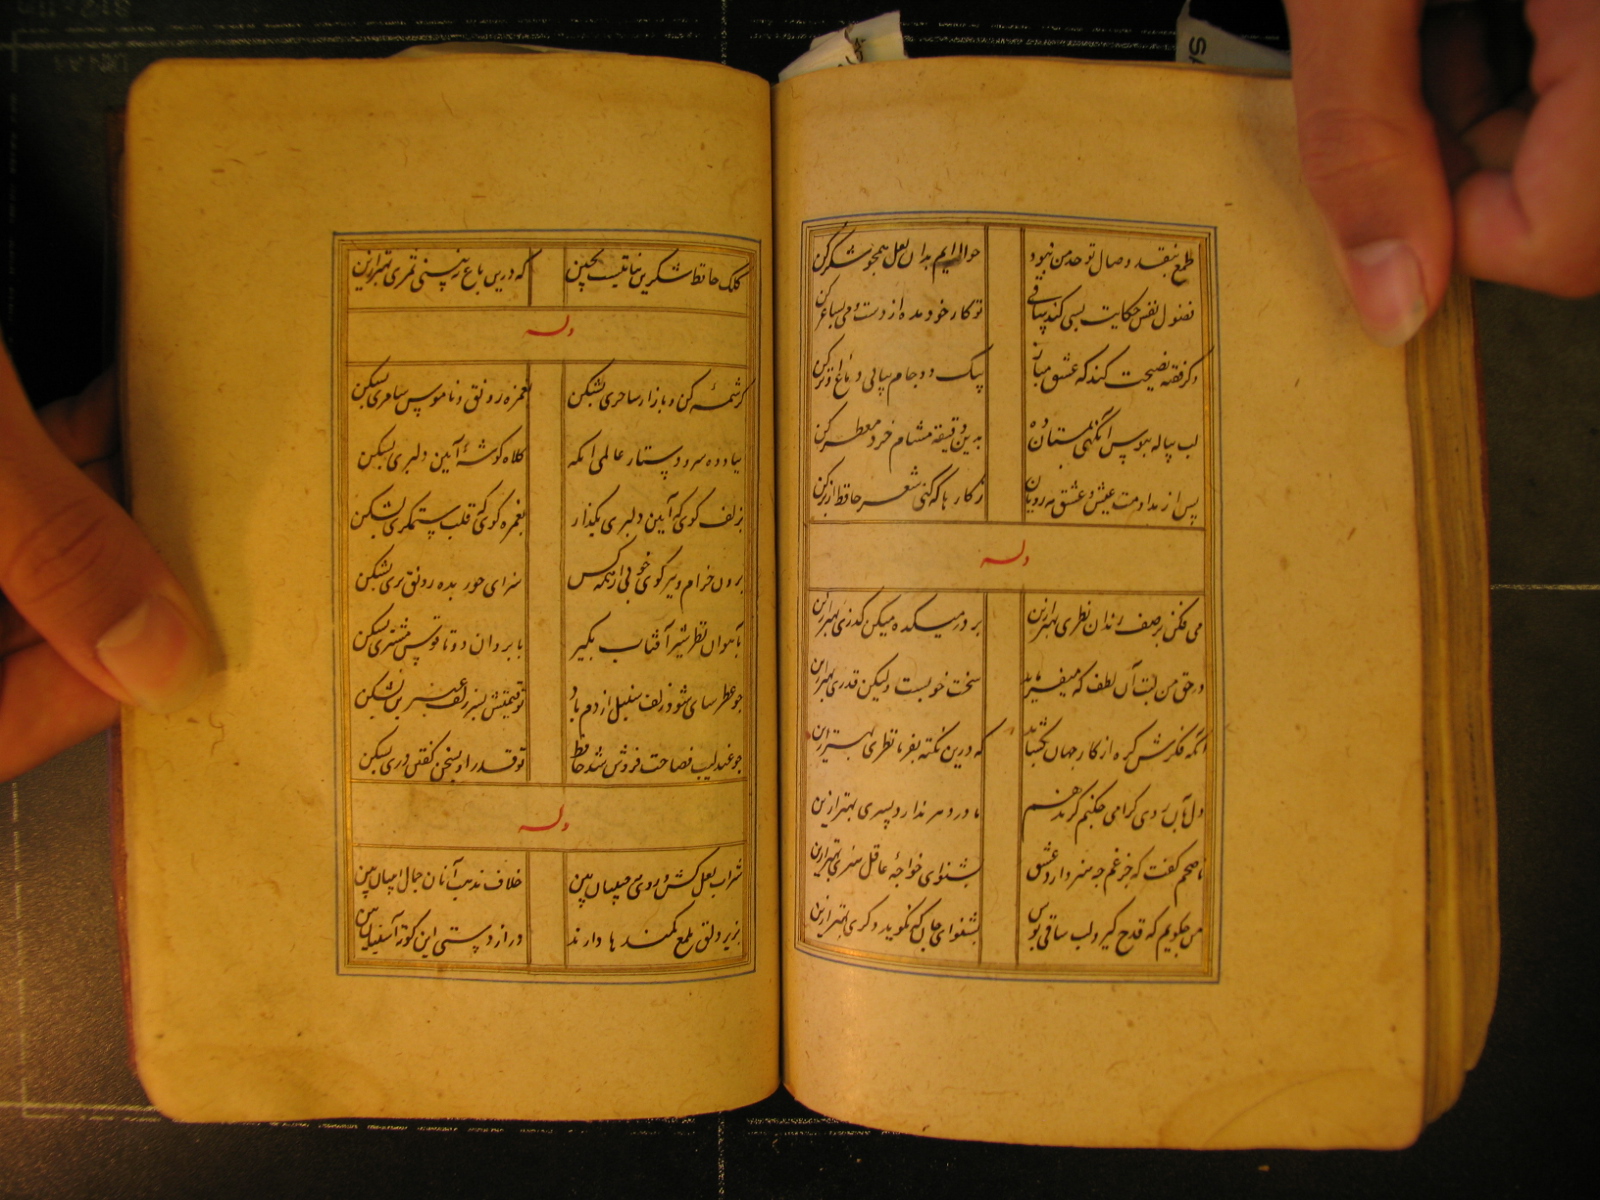 طمع بنقد وصال تو حد من نبود
حوالتم بدان لعل همچو شکر کن
فضول نفس حکایت بسی کند ساقی
تو کار خود مده از دست و می بساغر کن
وگر فقیه نصیحت کند که عشق مباز
پیاله دو جام بیابی دماغ او تر کن
لب پیاله ببوس آنگهی بمستان ده
بدین دقیقه مشام خرد معطر کن
پس از مداومت عیش و عشق مه رویان
ز کار ها که کنی شعر حافظ از بر کن
وله
می فکن بر صف رندان نظری بهتر ازین
بر در میکده میکن گذری بهتر ازین
در حق من لبت آن لطف که میفرماید
سخت خوبست ولیکن قدری بهتر ازین
آنکه فکرش گره از کار جهان بگشاید
که درین نکته بفرما نظری بهتر ازین
دل بدان رودی گرامی چکنم گر ندهم
مادر دهر ندارد پسری بهتر ازین
ناصحم گفت که جز غم چه هنر دارد عشق
بشنو ای خواجه عاقل هنری بهتر ازین
من چو گویم که قدح گیر و لب ساقی بوس
بشنو ای جان که نگوید دگری بهتر ازین
کلک حافظ شکرین شاخ نباتیست بچین
که درین باغ نبینی ثمری بهتر ازین
وله
کرشمه کن و بازار ساحری بشکن
بغمزه رونق و ناموس سامری بشکن
بباد ده سر و دستار عالمی آنکه
کلاه گوشه آیین دلبری بشکن
بزلف گوی که آیین دلبری بگذار
بغمزه گوی که قلب ستمگری بشکن
برون خرام و ببر گوی خوبی از همه کس
سزای حور بده رونق پری بشکن
بآهوان نظر شیر آفتاب بگیر
بابروان دوتا قوس مشتری بشکن
چو عطر سای شود زلف سنبل از دم باد
تو قیمتش بسر زلف عنبرین بشکن
چو عندلیب فصاحت فروش شد حافظ
تو قدر او بسخن گفتن دری بشکن
وله
شراب لعل کش و روی مه جبینان بین
خلاف مذهب آنان جمال اینان بین
بزیر دلق ملمع کمند ها دارند
دراز دستی این کوته آستینان بین